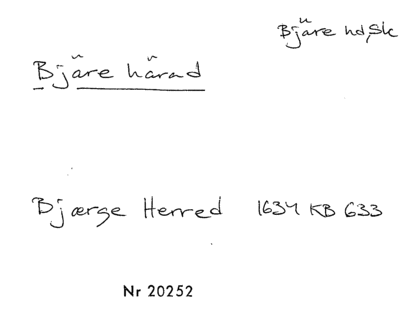 Bjäre hd, Sk
Bjäre härad
Bjærge Herred 1634 KB 633
Nr 20252